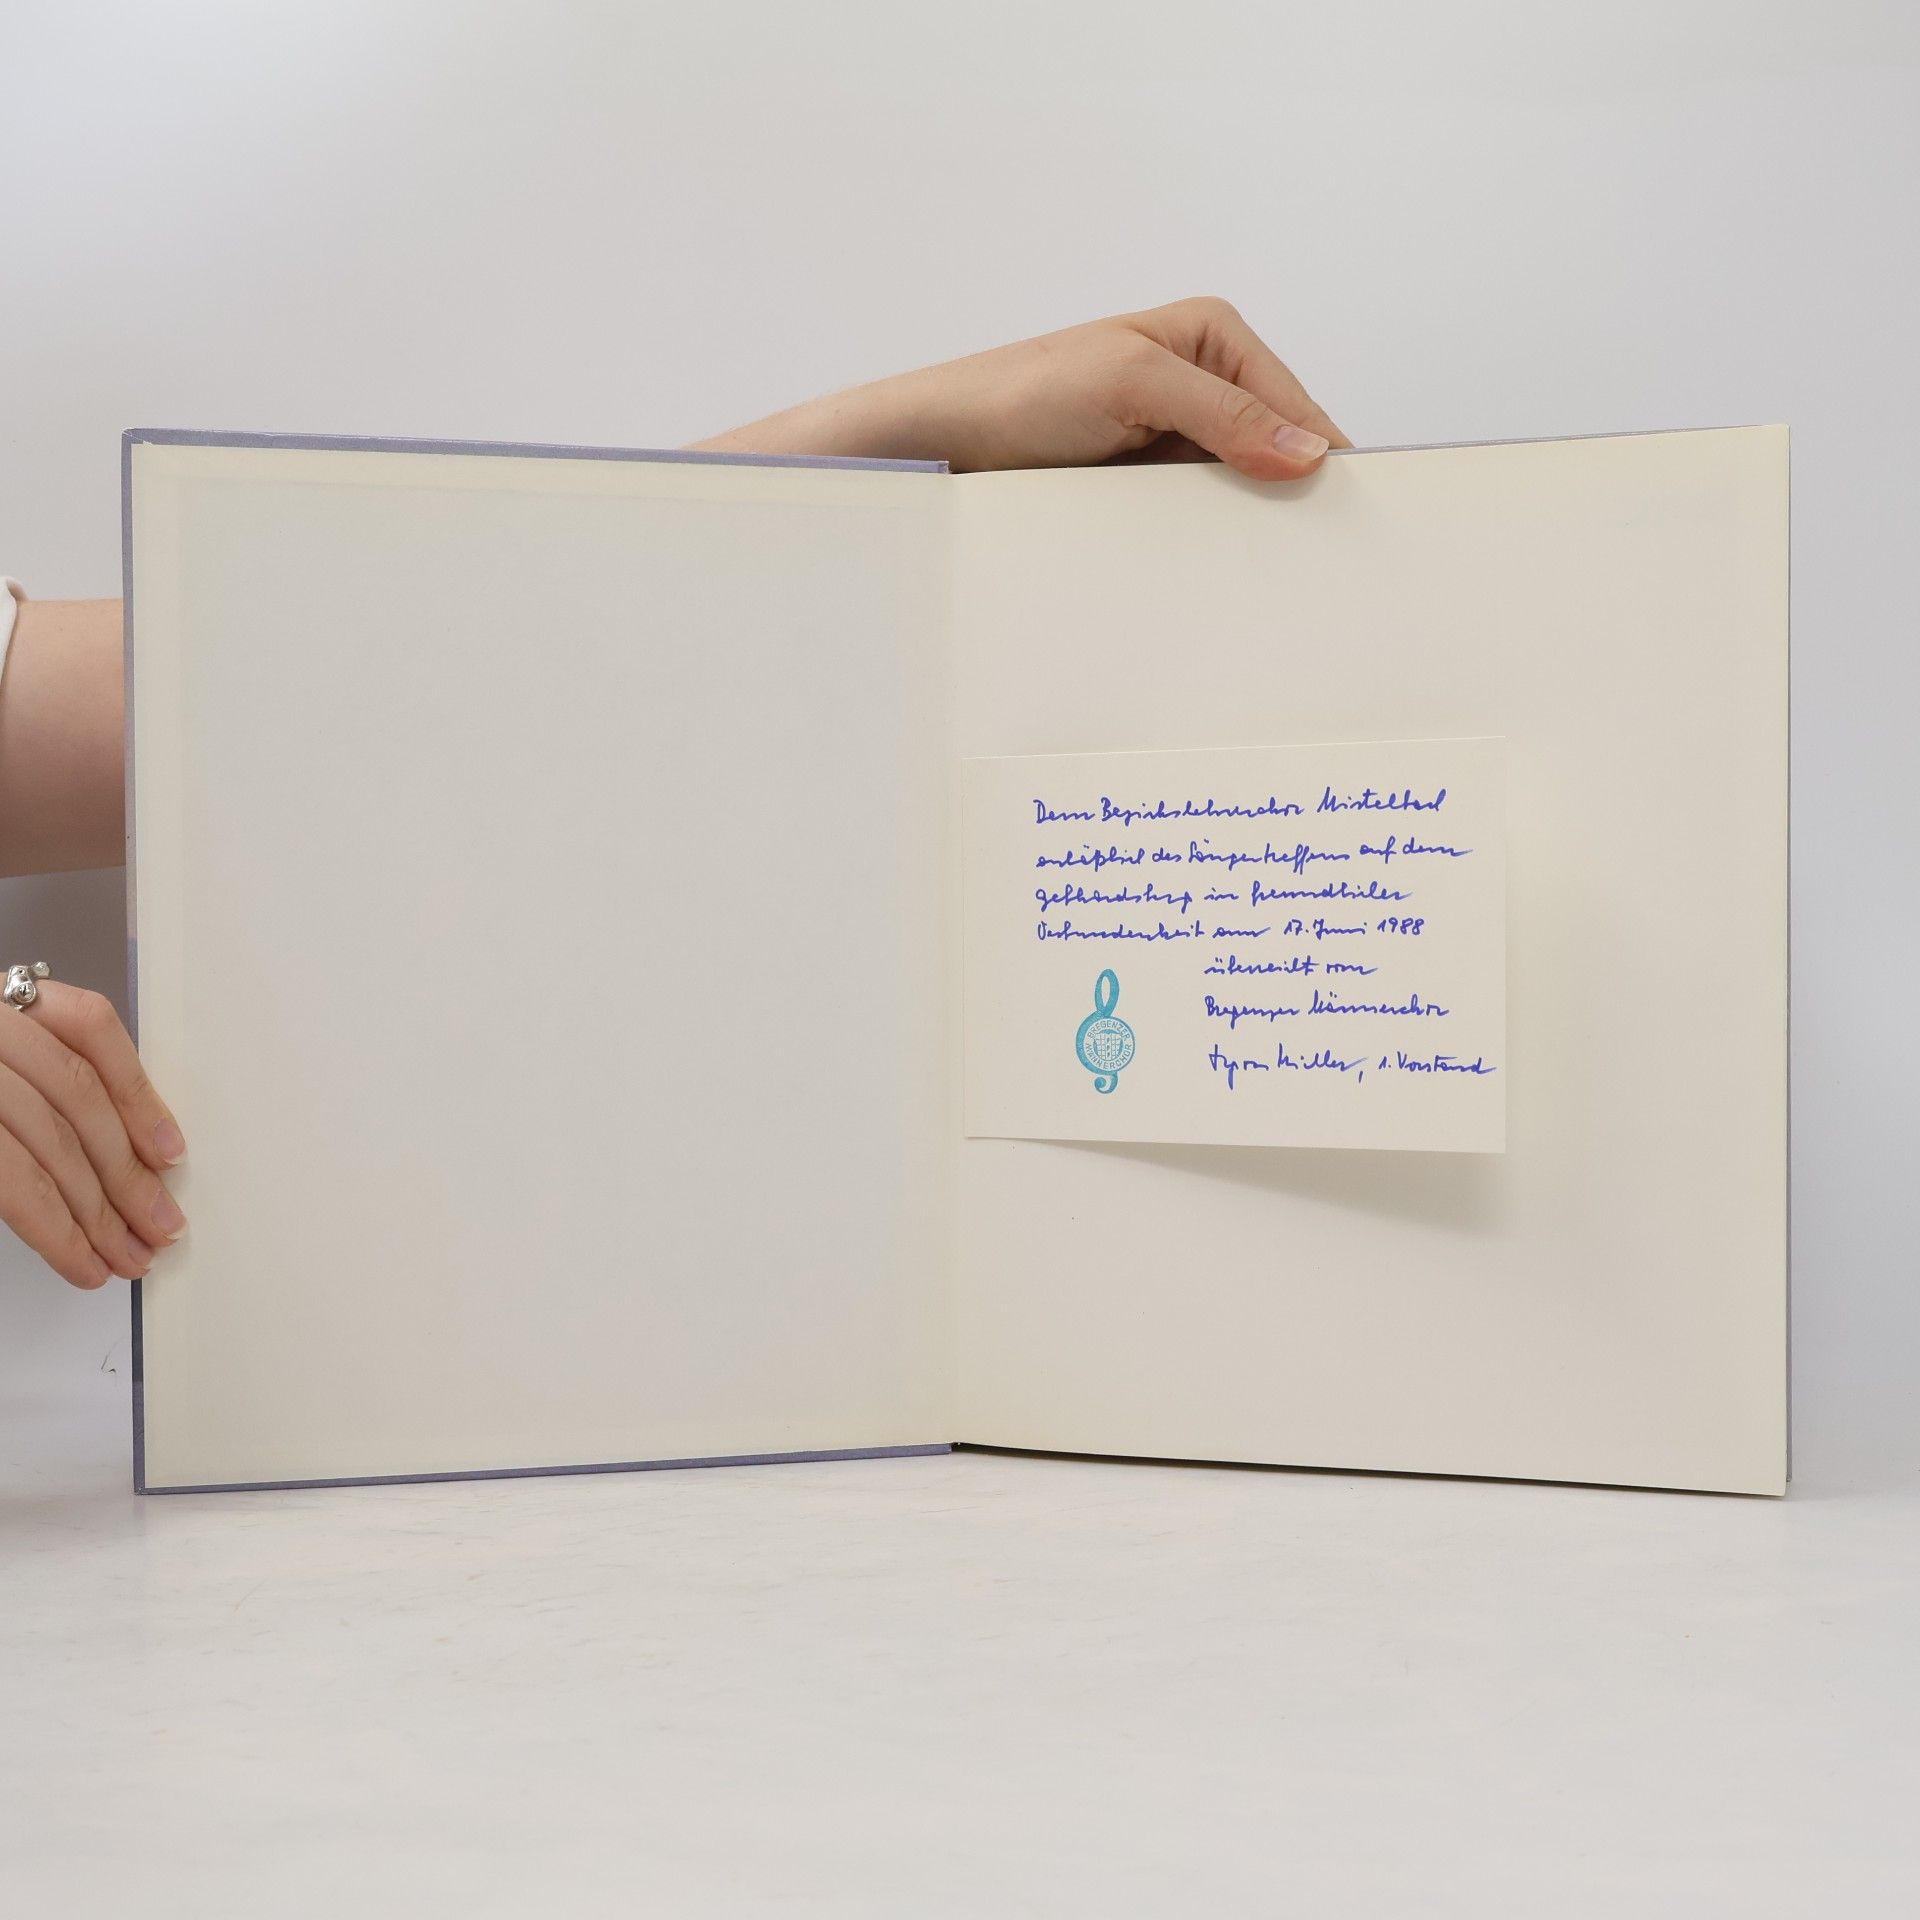 Dem Bezirkslehrerchor Mistelbach
anläßlich des Sängertreffens auf dem
Gebhardsberg in freundlicher
Verbundenheit am 17. Juni 1988
überreicht vom
Bregenzer Männerchor
Miller, 1. Vorstand
BREGENZER
MÄNNERCHOR